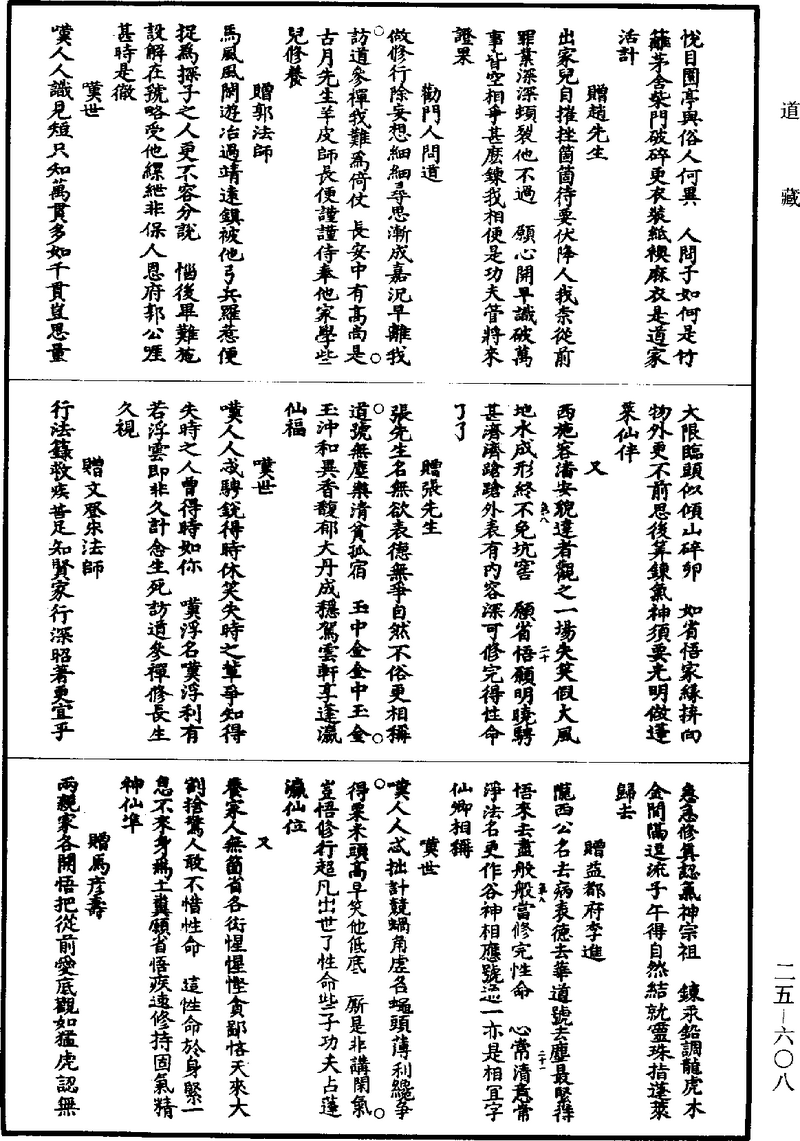 道藏
悅目園亭與俗人何異　人問子如何是竹
籬茅舍柴門破碎更衣裝紙襖麻衣是道家
活計
贈趙先生
出家兒自摧挫箇箇待要伏降人我柰從前
罪業深深頻裂他不過　願心開早識破萬
事皆空相爭甚麽鍊我相便是功夫管將來
證果
勸門人問道
做修行除妄想細細尋思漸成嘉況早離我
訪道參禪我難爲倚仗　長安中有高尚是
古月先生羊皮師長便謹謹侍奉他家學些
兒修養
贈郭法師
馬風風閑遊冶過靖遠鎮被他弓兵羅惹便
捉爲探子之人更不容分說　惱後畢難施
設解在虢略受他縲紲非保人恩府郭公啀
甚時是徹
嘆世
嘆人人識見短只知萬貫多如千貫豈思量
大限臨頭似傾山碎卵　如省悟家緣拚向
物外更不前思後筭鍊氣神須要光明做蓬
萊仙伴
又
西施容潘安貌達者觀之一場失笑假大風
地水成形終不免坑窖　願省悟願明曉騁
甚濟濟蹌蹌外表有內容深可修完得性命
了了
贈張先生
張先生名無欲表德無爭自然不俗更相稱
道號無塵樂清貧孤宿　玉中金金中玉金
玉沖和異香馥郁大丹成穩駕雲軒享蓬瀛
仙福
嘆世
嘆人人忒騁銳得時休笑失時之輩爭知得
失時之人曾得時如你　嘆浮名嘆浮利有
若浮雲卽非久計念生死訪道參禪修長生
久視
贈文登宋法師
行法籙救疾苦足知賢家行深昭著更宜乎
急急修眞認氣神宗祖　鍊汞鉛調龍虎木
金間隔逆流子午得自然結就靈珠指蓬萊
歸去
贈益都府李進
隴西公名去病表德去華道號去塵最緊得
悟來去盡般般當修完性命　心常清意常
淨法名更作谷神相應號遜一亦是相宜字
仙卿相稱
嘆世
嘆人人忒拙計競蝸角虛名蠅頭薄利纔爭
得粟米頭高早笑他低底　厮是非講閑氣
豈悟修行超凡出世了性命些子功夫占蓬
瀛仙位
又
養家人無箇省各衒惺惺慳貪鄙悋天來大
劄搶驚人敢不惜性命　這性命於身緊一
息不來身爲土糞願省悟疾速修持固氣精
神仙準
贈馬彥壽
兩親家各開悟把從前愛底觀如猛虎認無
二五－六〇八